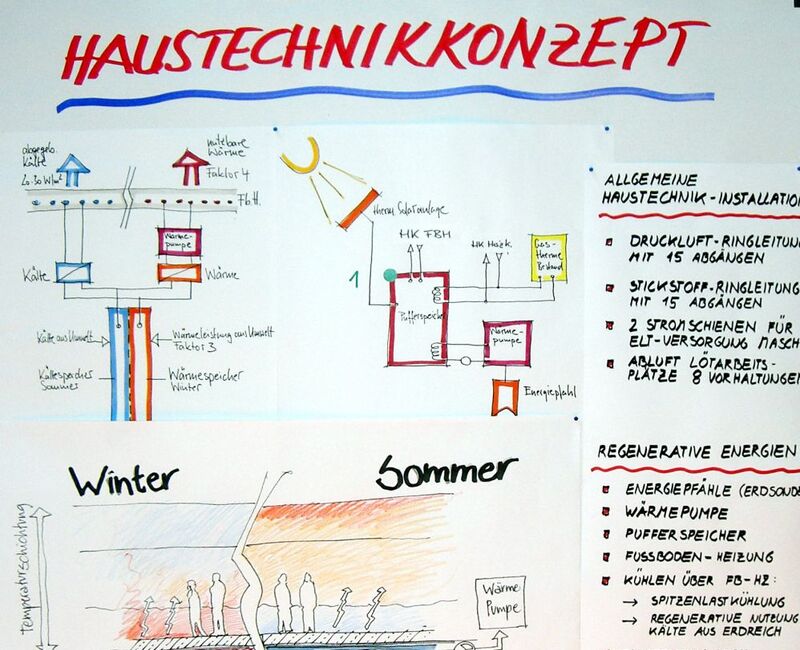 HAUSTECHNIKKONZEPT
abgegeb.
Kälte
20-30 W/m²
nutzbare
Wärme
Faktor 4
Fb.H.
Wärme-
pumpe
Kälte
Wärme
Kälte aus Umwelt
Wärmeleistung aus Umwelt
Faktor 3
Kältespeicher
Sommer
Wärmespeicher
Winter
therm Solaranlage
HK FBH
HK Hock
Gas-
therme
Bestand
1
Pufferspeicher
Wärme-
pumpe
Energiepfahl
ALLGEMEINE
HAUSTECHNIK-INSTALLATION
DRUCKLUFT-RINGLEITUN
MIT 15 ABGÄNGEN
STICKSTOFF-RINGLEITUN
MIT 15 ABGÄNGEN
2 STROMSCHIENEN FÜR
ELT-VERSORGUNG MASCH
ABLUFT LÖTARBEITS-
PLÄTZE 8 VORHALTUNGEN
REGENERATIVE ENERGIEN
ENERGIEPFÄHLE (ERDSONDE
WÄRMEPUMPE
PUFFERSPEICHER
FUSSBODEN-HEIZUNG
KÜHLEN ÜBER FB-HZ:
→ SPITZENLASTKÜHLUNG
→ REGENERATIVE NUTZUNG
KÄLTE AUS ERDREICH
Winter
Sommer
Temperaturschichtung
Wärme
Pumpe